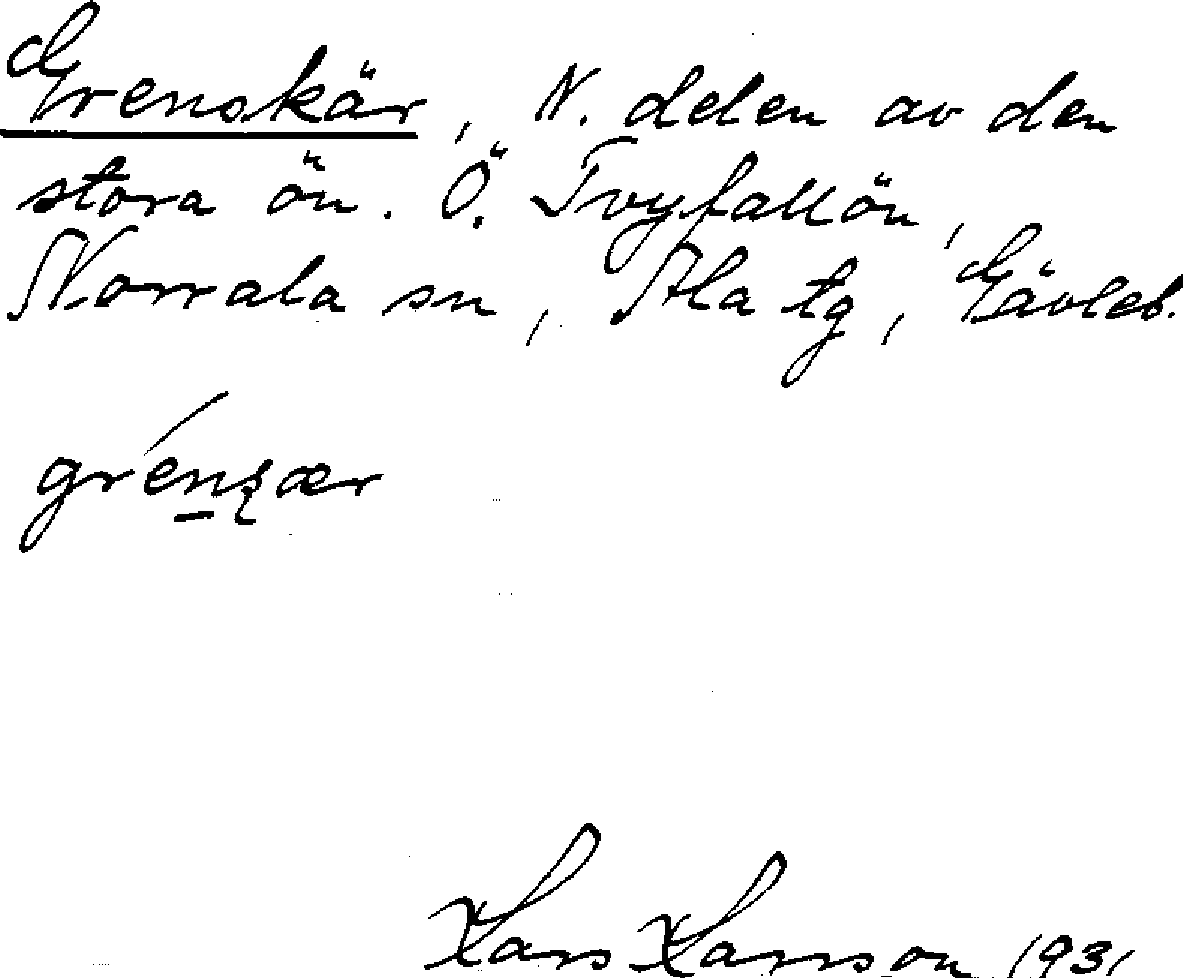 Grenskär, N. delen av den
stora ön. Ö. Tvyfallön,
Norrala sn, Ala tg, Gävleb.
Lars Larsson 1931